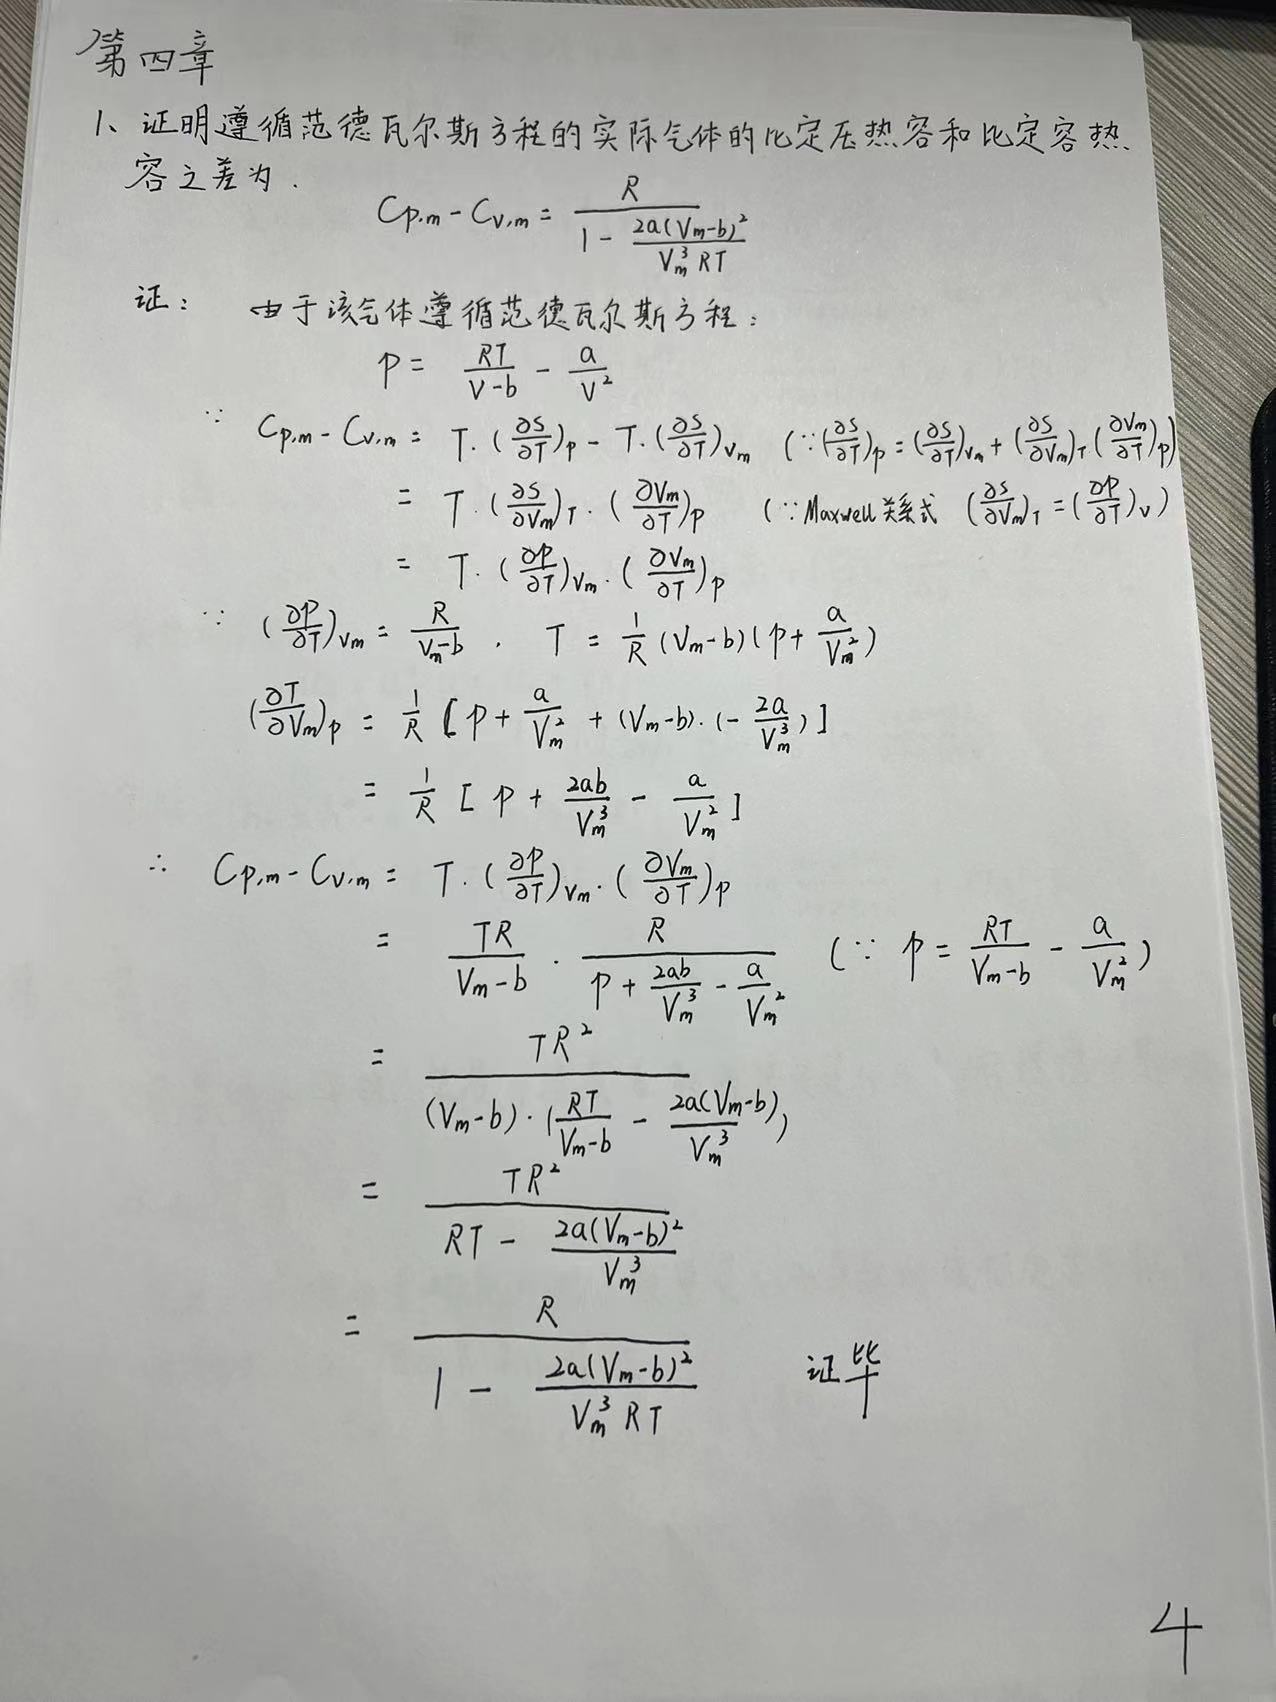 第四章
1、证明遵循范德瓦尔斯方程的实际气体的比定压热容和比定容热
容之差为.
Cp,m - Cv,m = R / (1 - 2a(Vm-b)² / (Vm³RT))
证: 由于该气体遵循范德瓦尔斯方程:
p = RT/(V-b) - a/V²
∵ Cp,m - Cv,m = T·(∂S/∂T)p - T·(∂S/∂T)Vm (∵(∂S/∂T)p = (∂S/∂T)Vm + (∂S/∂Vm)T(∂Vm/∂T)p)
= T·(∂S/∂Vm)T·(∂Vm/∂T)p (∵Maxwell关系式 (∂S/∂Vm)T = (∂p/∂T)v)
= T·(∂p/∂T)Vm·(∂Vm/∂T)p
∵ (∂p/∂T)Vm = R/(Vm-b), T = 1/R (Vm-b)(p + a/Vm²)
(∂T/∂Vm)p = 1/R [p + a/Vm² + (Vm-b)·(-2a/Vm³)]
= 1/R [p + 2ab/Vm³ - a/Vm²]
∴ Cp,m - Cv,m = T·(∂p/∂T)Vm·(∂Vm/∂T)p
= TR/(Vm-b) · R/(p + 2ab/Vm³ - a/Vm²) (∵ p = RT/(Vm-b) - a/Vm²)
= TR² / ((Vm-b)·(RT/(Vm-b) - 2a(Vm-b)/Vm³))
= TR² / (RT - 2a(Vm-b)²/Vm³)
= R / (1 - 2a(Vm-b)² / (Vm³RT)) 证毕
4